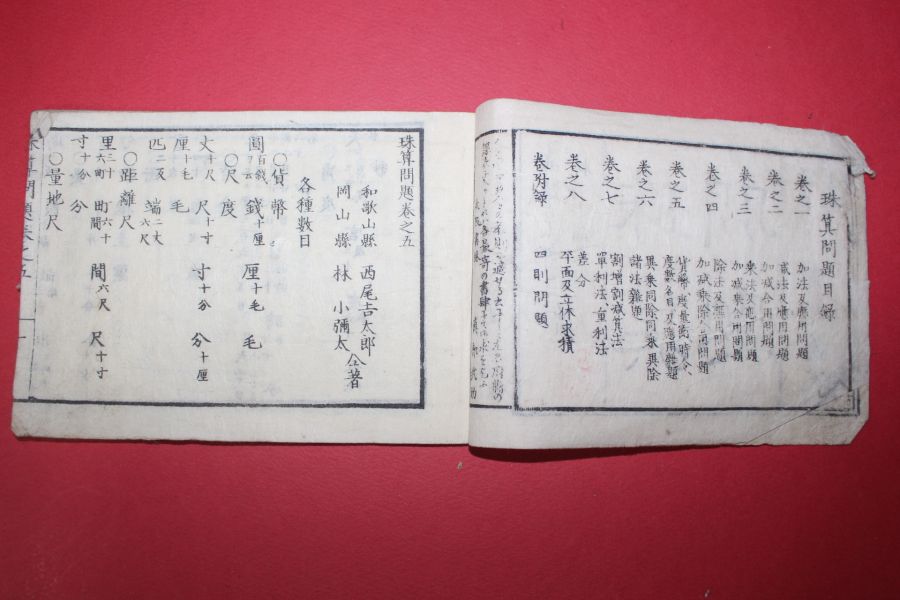 珠算問題目録
卷之一　加法及應用問題
卷之二　減法及應用問題
加減合用問題
卷之三　乘法及應用問題
加減乘合用問題
卷之四　除法及應用問題
加減乘除合用問題
卷之五　貨幣、度量衡、時分、
度數名目及應用雜題
卷之六　異乘同除同乘異除
諸法雜題
卷之七　割増割減算法
單利法、重利法
卷之八　差分
平面及立体求積
卷附録　四則問題
珠算問題卷之五
和歌山縣　西尾吉太郎
岡山縣　林　小彌太　仝著
各種數目
〇貨幣
圓百錢　錢十厘　厘十毛　毛
〇尺度
丈十尺　尺十寸　寸十分　分十厘
厘十毛　毛
匹二反　端二丈六尺
〇距離尺
里三十六町　町六十間　間六尺　尺十寸
寸十分　分
〇量地尺
珠算問題卷之五